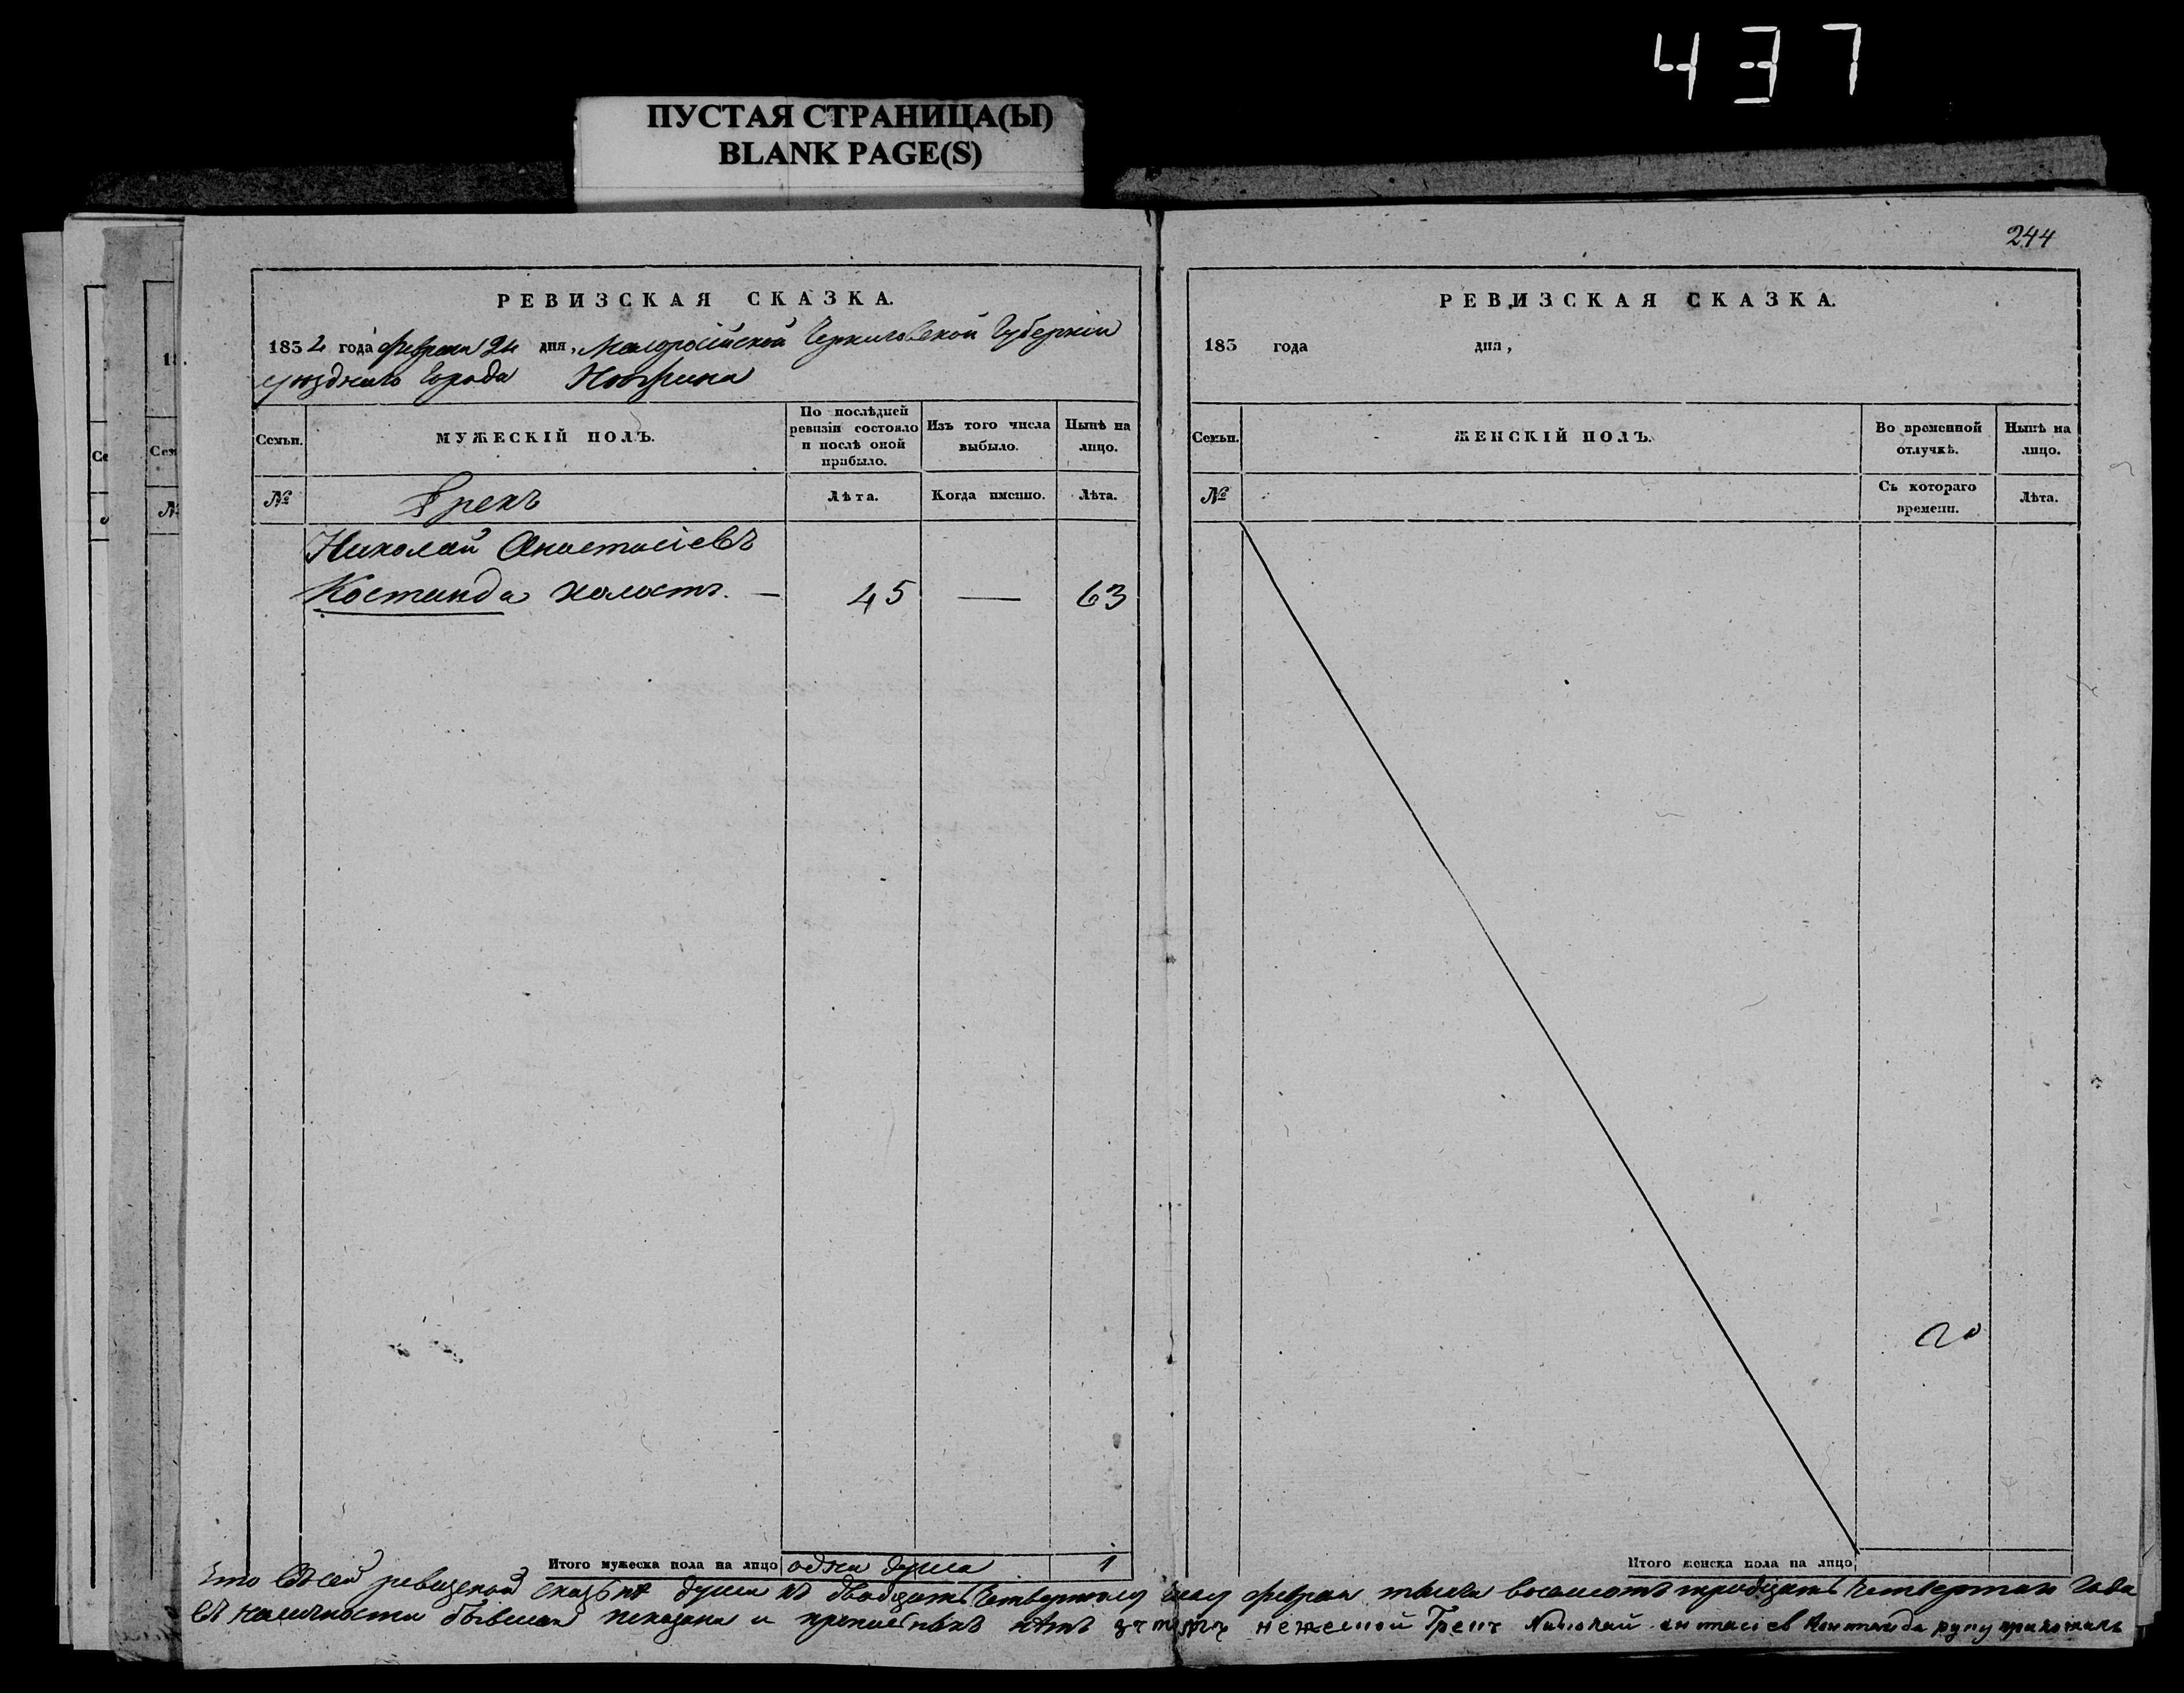 437
ПУСТАЯ СТРАНИЦА(Ы)
BLANK PAGE(S)
РЕВИЗСКАЯ СКАЗКА.
183 года февраля 24 дня, Малоросійской Черниговской Губерніи
уѣзднаго Города Нѣжина
Семьи.
МУЖЕСКІЙ ПОЛЪ.
По послѣдней ревизіи состояло и послѣ оной прибыло.
Изъ того числа выбыло.
Нынѣ на лицо.
№
Грекъ
Лѣта.
Когда именно.
Лѣта.
Николай Анастасіевъ
Костанда холостъ. — 45 — 63
Итого мужеска пола на лицо одна душа 1
244
РЕВИЗСКАЯ СКАЗКА.
183 года дня,
Семьи.
ЖЕНСКІЙ ПОЛЪ.
Во временной отлучкѣ.
Нынѣ на лицо.
№
Съ котораго времени.
Лѣта.
Итого женска пола на лицо
Что въ сей ревизской сказкѣ душа къ двадцать четвертому числу февраля тысяча восемсотъ тридцать четвертаго Года
въ наличности бывшая показана и прописныхъ нѣтъ Грекъ Николай руку приложилъ